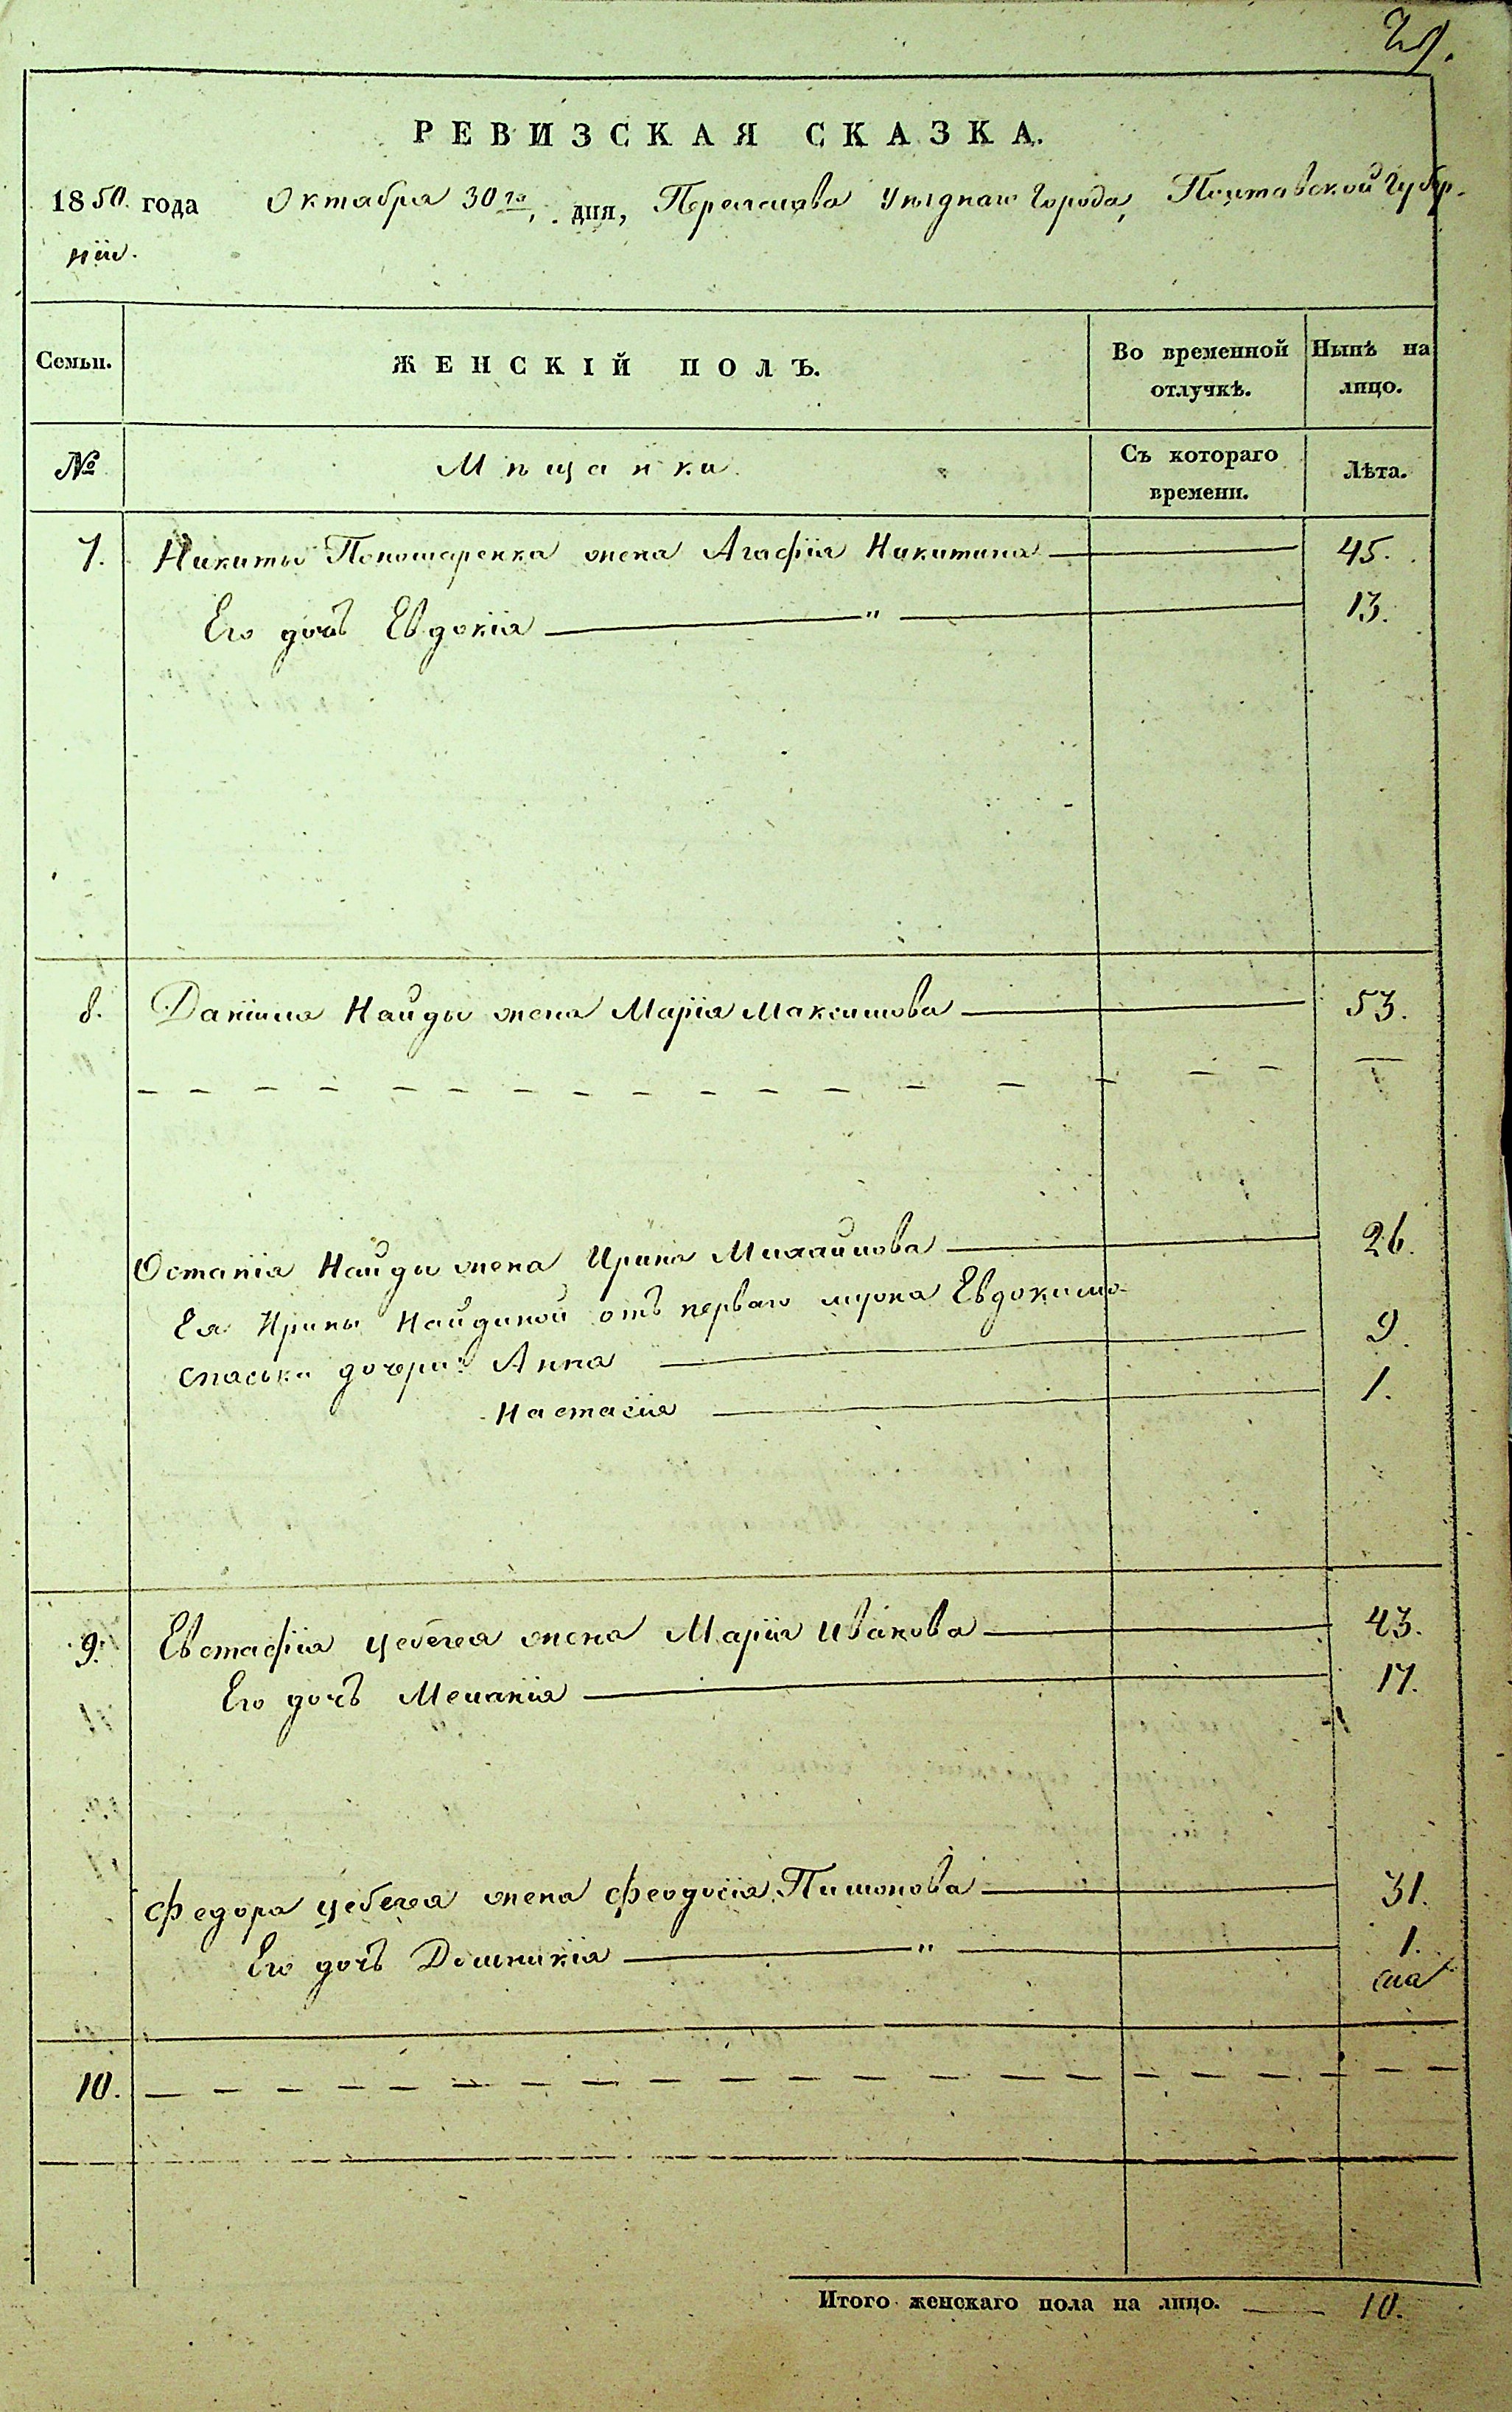 РЕВИЗСКАЯ СКАЗКА.
1850. года Октабря 30го, дня, Переяслава Уѣзднаго Города, Полтавской Губер-
ніи.
Семьи. ЖЕНСКІЙ ПОЛЪ. Во временной отлучкѣ. Нынѣ на лицо.
№ Мѣщанки Съ котораго времени. Лѣта.
7. Никиты Пономаренка жена Агафія Никитина 45.
Его дочь Евдокія " 13.
8. Даніила Найды жена Марія Максимова 53.
Остапія Найды жена Ирина Михайлова 26.
Ея Ирины Найдиной отъ перваго мужа Евдокима
Спаськи дочери: Анна 9.
Настасія 1.
9. Евстафія Цебегея жена Марія Иванова 43.
Его дочь Меланія 17.
Федора Цебегея жена Феодосія Пимонова 31.
Его дочь Домникія " 1.
10.
Итого женскаго пола на лицо. 10.